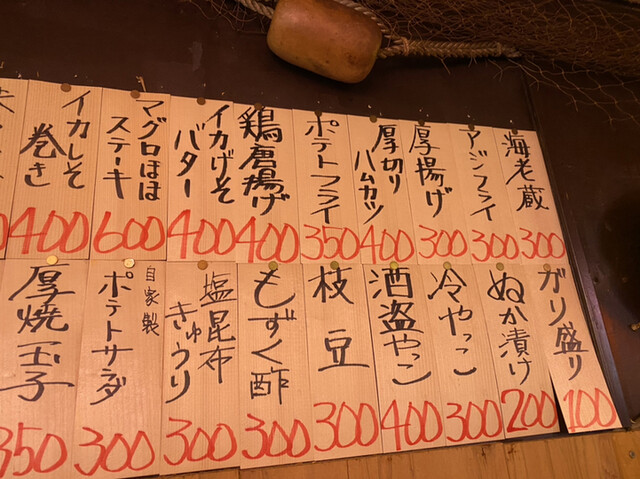 海老蔵
300
アジフライ
300
厚揚げ
300
厚切り
ハムカツ
400
ポテトフライ
350
鶏唐揚げ
400
イカげそ
バター
400
マグロほほ
ステーキ
600
イカしそ
巻き
400
ガリ盛り
100
ぬか漬け
200
冷やっこ
300
酒盗やっこ
400
枝豆
300
もずく酢
300
塩昆布
きゅうり
300
自家製
ポテトサラダ
300
厚焼玉子
350